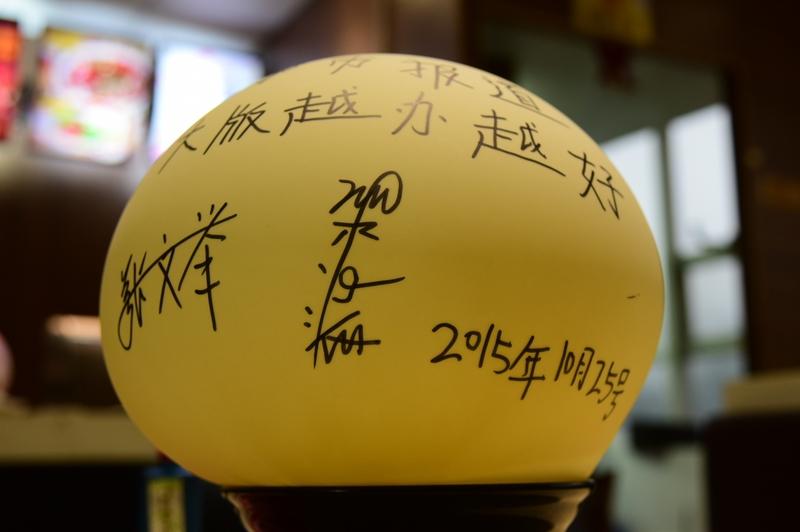 报道
版越办越好
张文举
梁
2015年10月25号